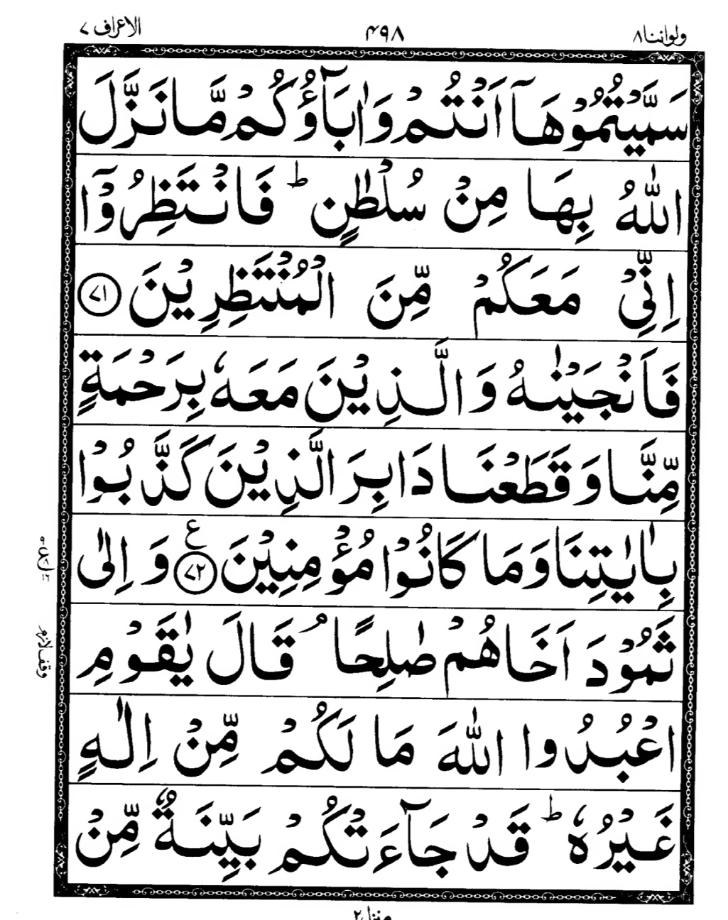 ولواننا ٨ ۴۹۸ الاعراف ٧
سَمَّيْتُمُوْهَاۤ اَنْتُمْ وَاٰبَآؤُكُمْ مَّا نَزَّلَ
اللّٰهُ بِهَا مِنْ سُلْطٰنٍ ؕ فَانْتَظِرُوْۤا
اِنِّیْ مَعَكُمْ مِّنَ الْمُنْتَظِرِیْنَ ﴿۷۱﴾
فَاَنْجَیْنٰهُ وَالَّذِیْنَ مَعَهٗ بِرَحْمَةٍ
مِّنَّا وَقَطَعْنَا دَابِرَ الَّذِیْنَ كَذَّبُوْا
بِاٰیٰتِنَا وَمَا كَانُوْا مُؤْمِنِیْنَ ﴿۷۲﴾ ع وَاِلٰی
ثَمُوْدَ اَخَاهُمْ صٰلِحًا ۘ قَالَ یٰقَوْمِ
اعْبُدُوا اللّٰهَ مَا لَكُمْ مِّنْ اِلٰهٍ
غَیْرُهٗ ؕ قَدْ جَآءَتْكُمْ بَیِّنَةٌ مِّنْ
وقف لازم
منزل ۲